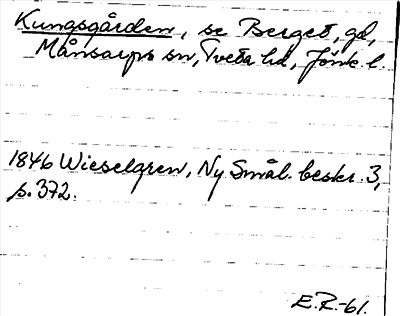 Kungsgården, se Berget, gd,
Månsarps sn, Tveta hd, Jönk. l.
1846 Wieselgren, Ny Smål. beskr. 3,
s. 372.
E.R.-61.